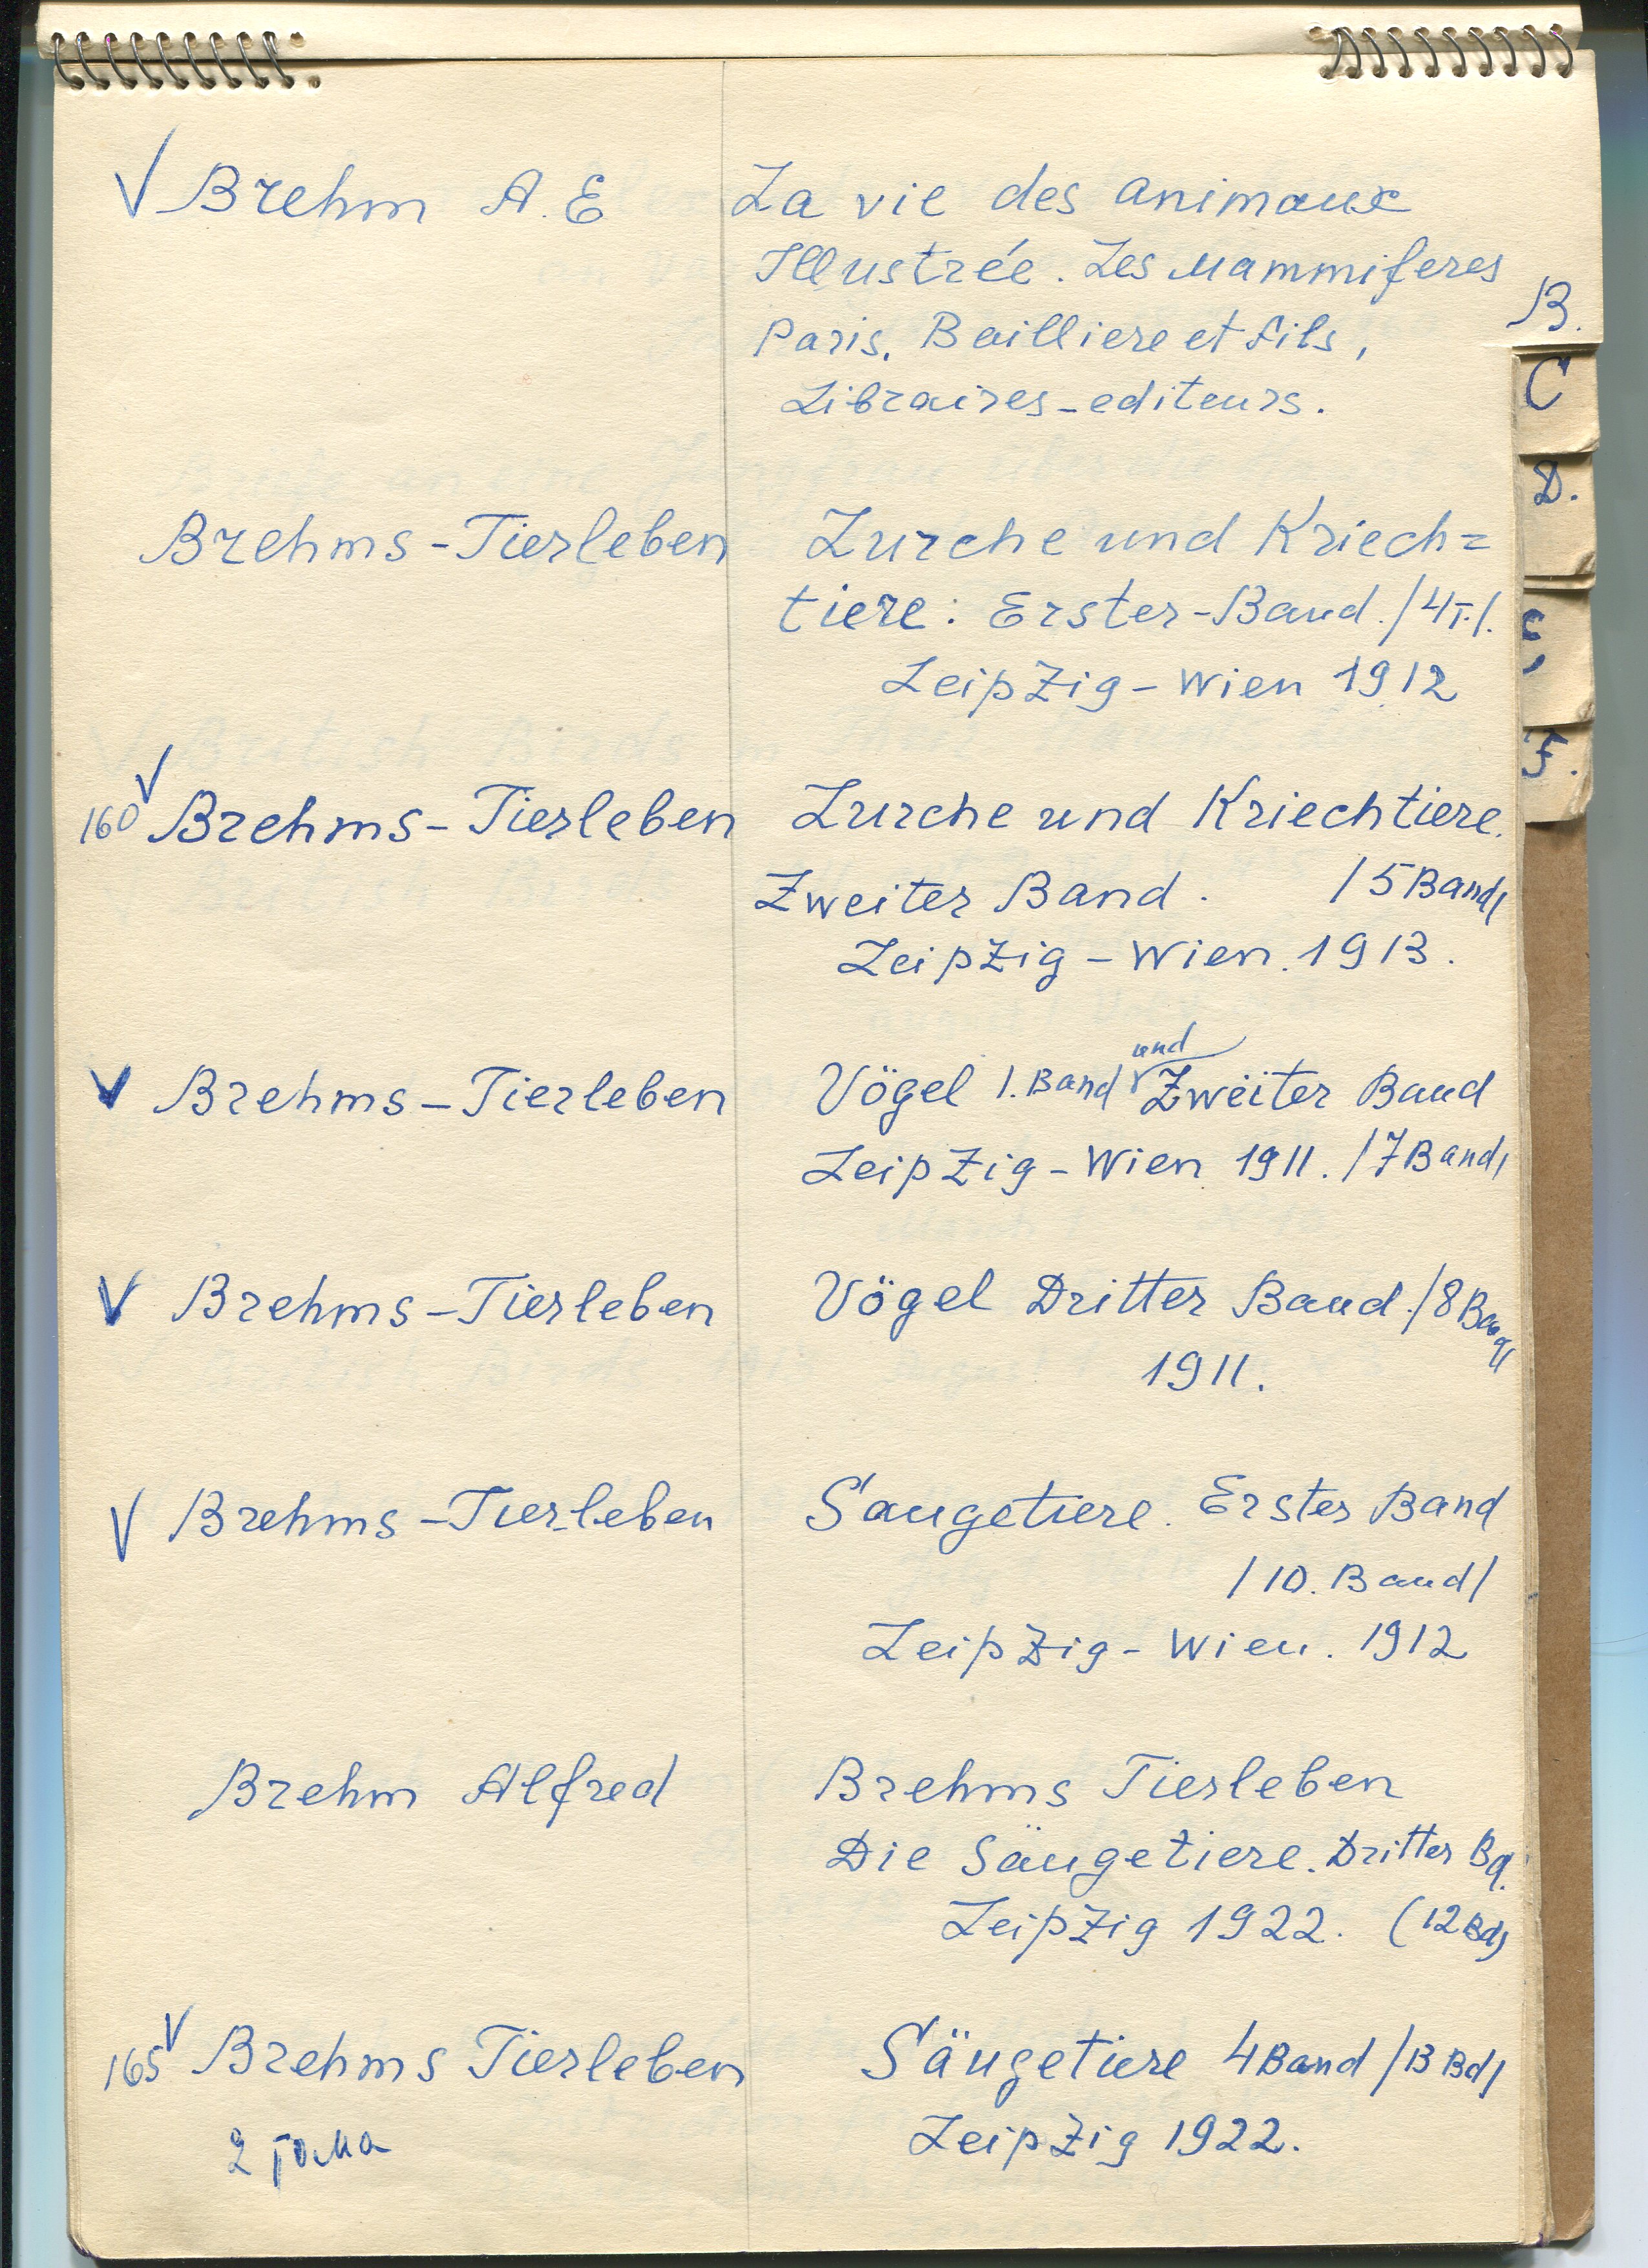 √ Brehm A. E La vie des animaux
Illustrée. Les mammiferes
Paris. Bailliere et fils,
Libraires-editeurs.
B.
C
D.
E,
F.
Brehms-Tierleben Lurche und Kriech=
tiere: Erster-Band. /4т./.
Leipzig-Wien 1912
√
160 Brehms-Tierleben Lurche und Kriechtiere.
Zweiter Band. /5 Band/
Leipzig-Wien. 1913.
und
√ Brehms-Tierleben Vögel 1. Band √ Zweiter Band
Leipzig-Wien 1911. /7 Band/
√ Brehms-Tierleben Vögel Dritter Band. /8 Band/
1911.
√ Brehms-Tierleben Saugetiere. Erster Band
/10. Band/
Leipzig-Wien. 1912
Brehm Alfred Brehms Tierleben
Die Säugetiere. Dritter Bd.
Leipzig 1922. (12 Bd)
√
165 Brehms Tierleben Säugetiere 4 Band /13 Bd/
2 тома Leipzig 1922.